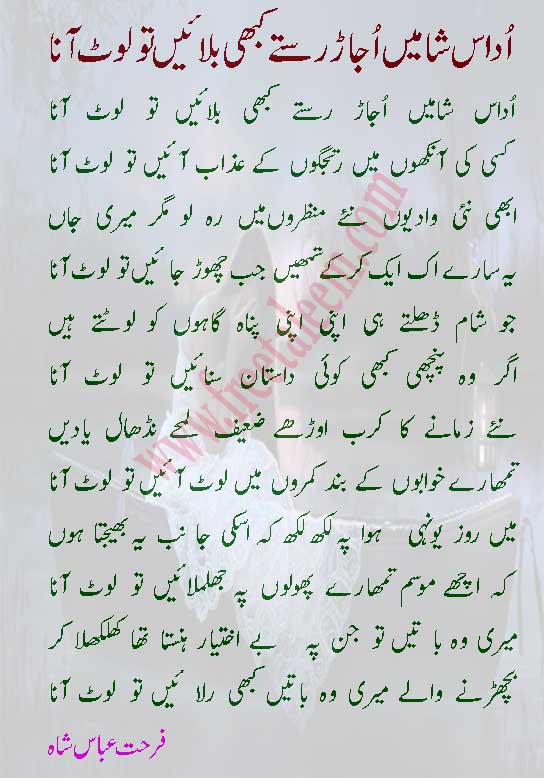 اُداس شامیں اُجاڑ رستے کبھی بلائیں تو لوٹ آنا
اُداس شامیں اُجاڑ رستے کبھی بلائیں تو لوٹ آنا
کسی کی آنکھوں میں رتجگوں کے عذاب آئیں تو لوٹ آنا
ابھی نئی وادیوں نئے منظروں میں رہ لو مگر میری جاں
یہ سارے اک ایک کر کے تمھیں جب چھوڑ جائیں تو لوٹ آنا
جو شام ڈھلتے ہی اپنی اپنی پناہ گاہوں کو لوٹتے ہیں
اگر وہ پنچھی کبھی کوئی داستان سنائیں تو لوٹ آنا
نئے زمانے کا کرب اوڑھے ضعیف لمحے نڈھال یادیں
تمھارے خوابوں کے بند کمروں میں لوٹ آئیں تو لوٹ آنا
میں روز یونہی ہوا پہ لکھ لکھ کہ اسکی جانب یہ بھیجتا ہوں
کہ اچھے موسم تمھارے پھولوں پہ جھلملائیں تو لوٹ آنا
میری وہ باتیں تو جن پہ بے اختیار ہنستا تھا کھلکھلا کر
بچھڑنے والے میری وہ باتیں کبھی رلائیں تو لوٹ آنا
فرحت عباس شاہ